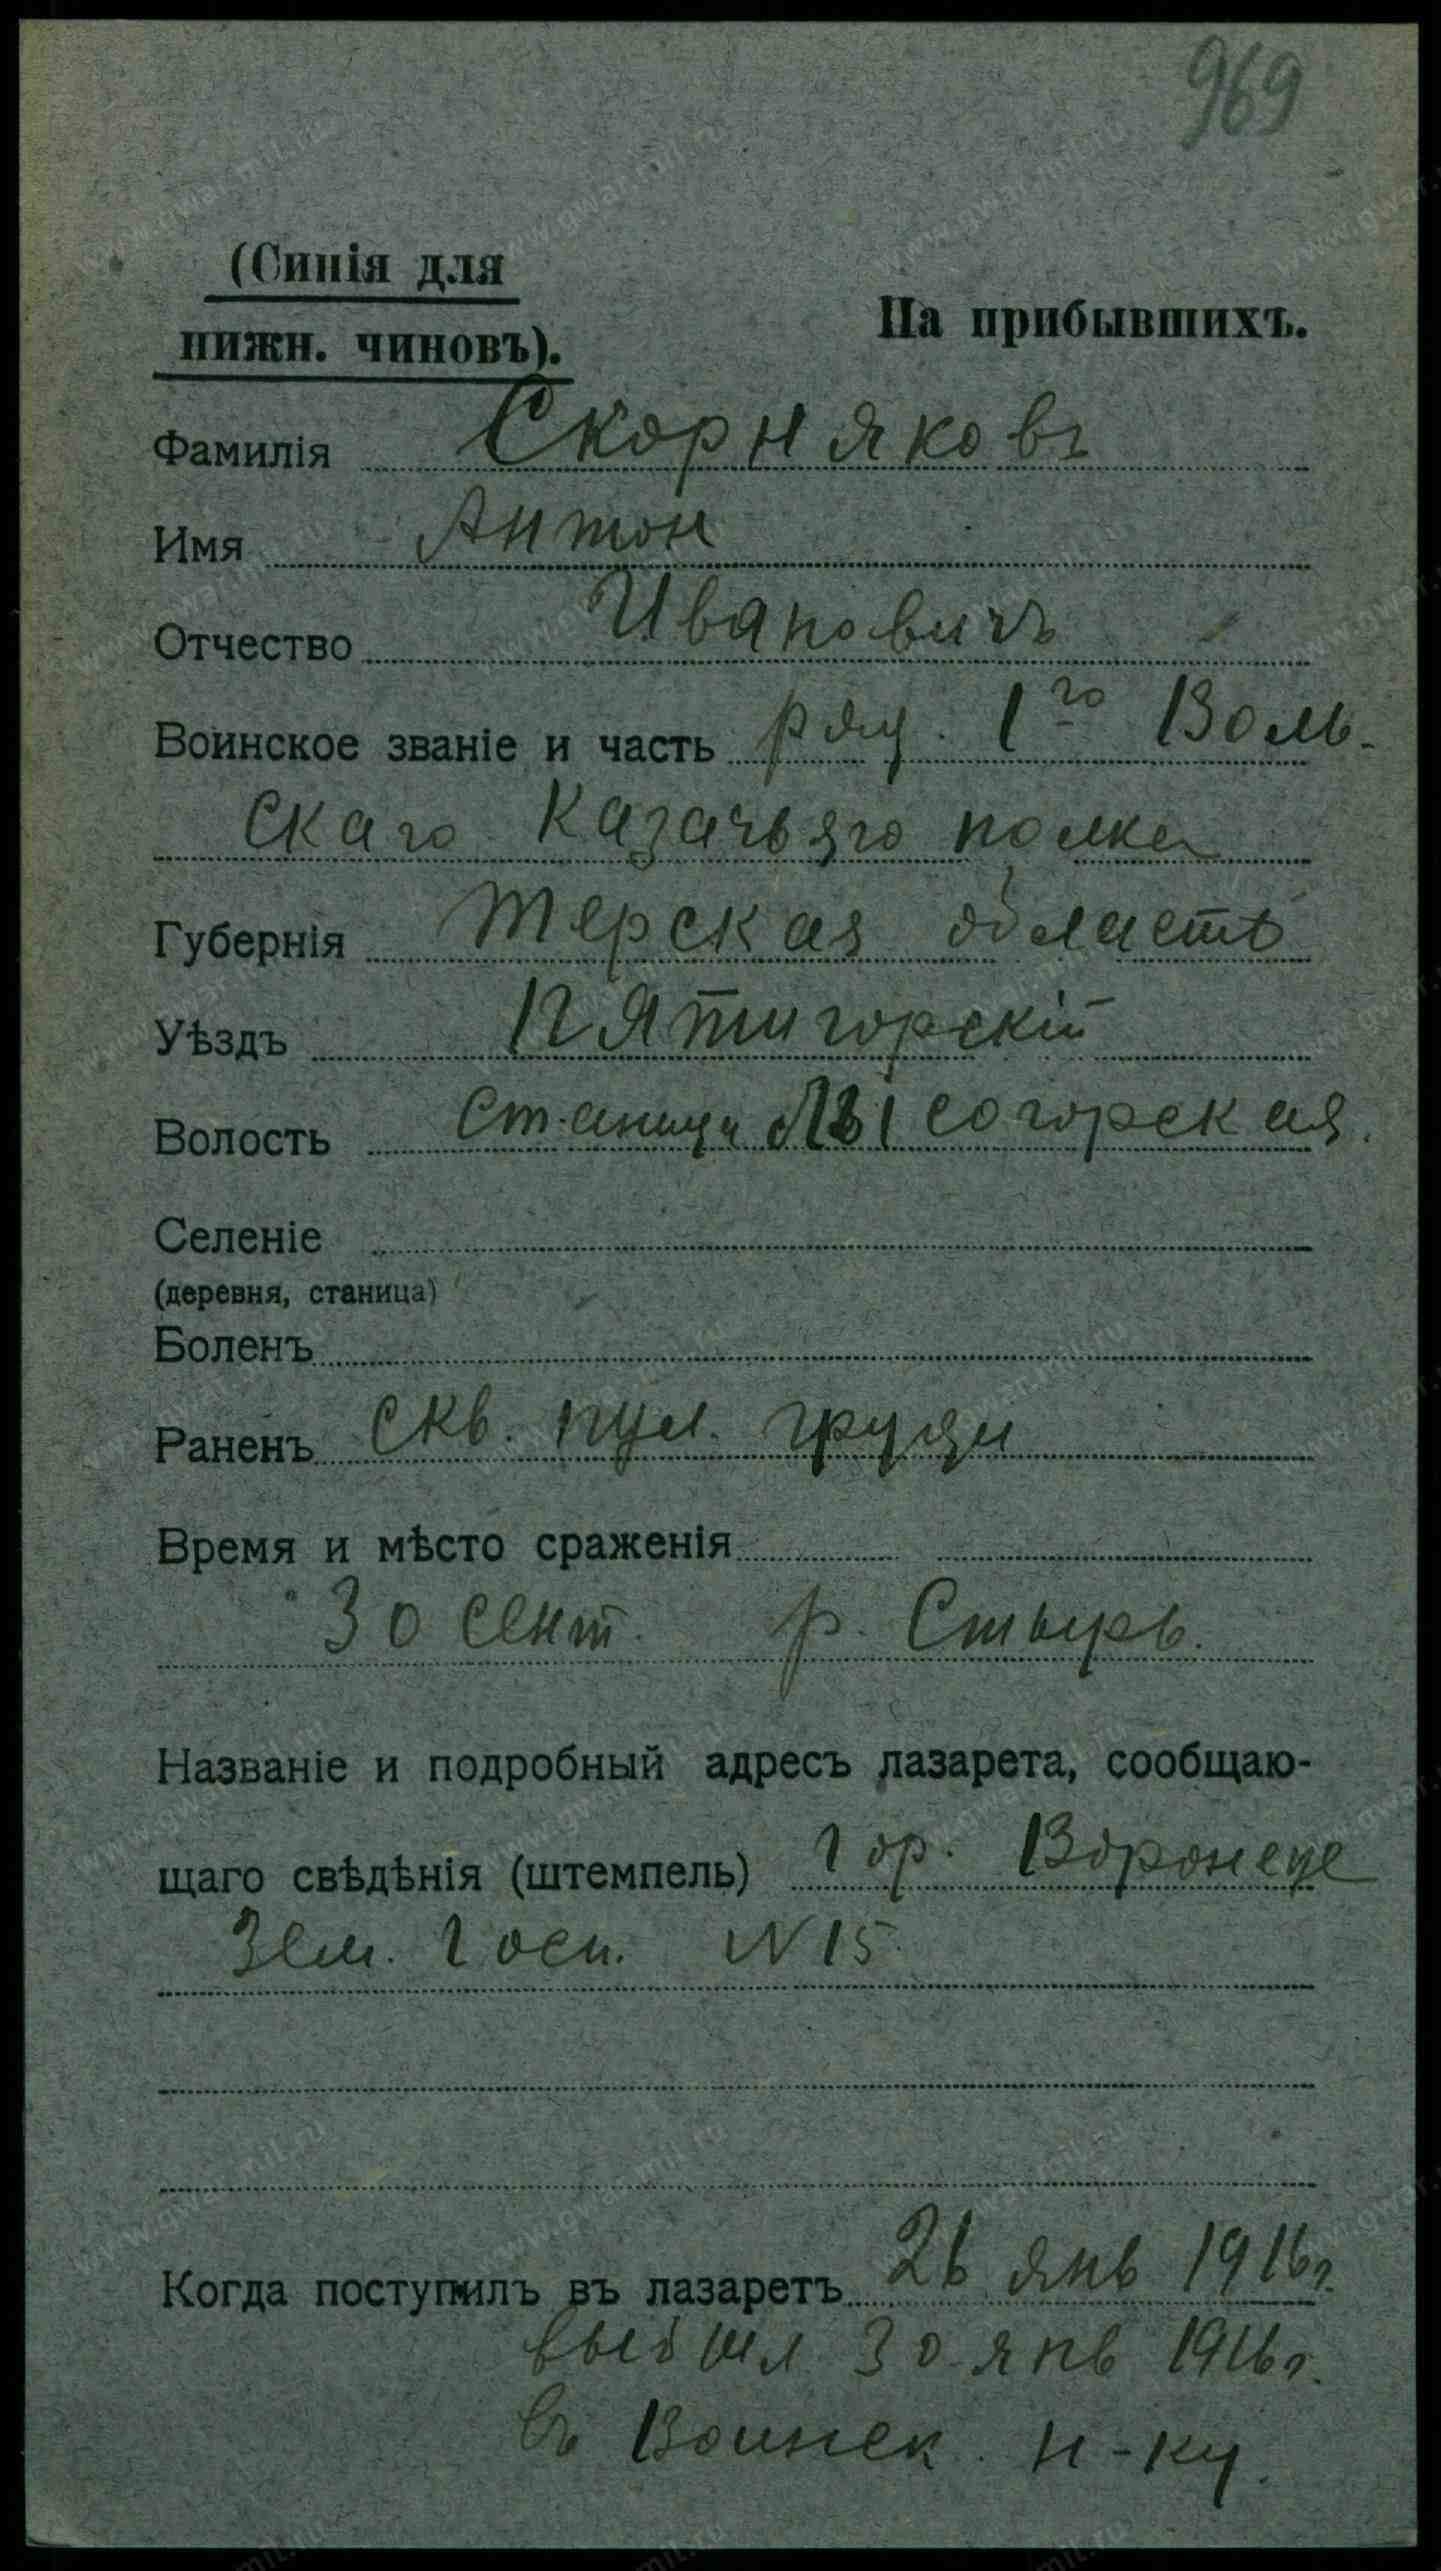 969
(Синія для
нижн. чиновъ).
На прибывшихъ.
Фамилія Скорняковъ
Имя Антон
Отчество Ивановичъ
Воинское званіе и часть ряд. 1го Воль-
скаго Казачьяго полка
Губернія Терская область
Уѣздъ Пятигорскій
Волость Станица Лысогорская.
Селеніе
(деревня, станица)
Боленъ
Раненъ скв. пул. груди
Время и мѣсто сраженія
30 сент. р. Стырь.
Названіе и подробный адресъ лазарета, сообщаю-
щаго свѣдѣнія (штемпель) гор. Воронеже
Зем. Госп. N 15
Когда поступилъ въ лазаретъ 26 янв 1916 г.
выбыл 30 янв 1916 г.
Въ Воинск. н-ку.